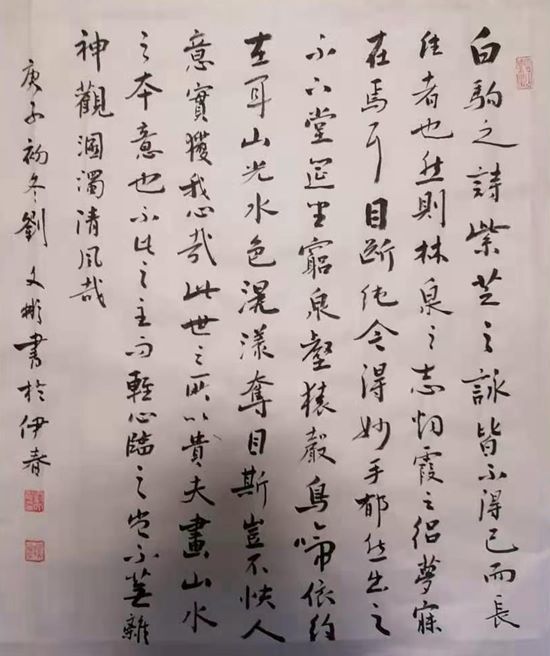 白駒之詩紫芝之詠皆不得已而長
往者也然則林泉之志烟霞之侣夢寐
在焉耳目断绝今得妙手郁然出之
不下堂筵坐窮泉壑猿聲鳥啼依约
在耳山光水色滉漾奪目斯豈不快人
意實獲我心哉此世之所以貴夫畫山水
之本意也不此之主而輕心臨之豈不蕪雜
神觀溷濁清风哉
庚子初冬劉文彬書於伊春